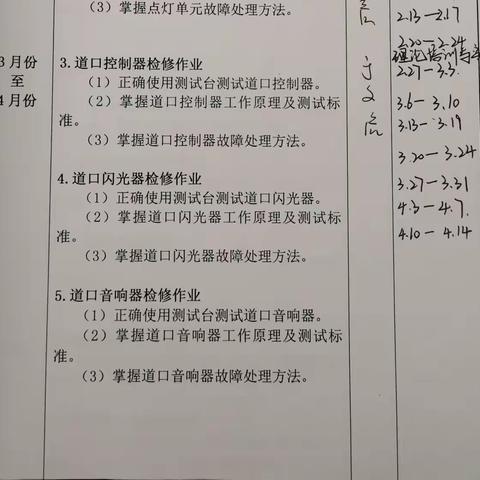 （3）掌握点灯单元故障处理方法。
3月份
至
4月份
3.道口控制器检修作业
（1）正确使用测试台测试道口控制器。
（2）掌握道口控制器工作原理及测试标
准。
（3）掌握道口控制器故障处理方法。
4.道口闪光器检修作业
（1）正确使用测试台测试道口闪光器。
（2）掌握道口闪光器工作原理及测试标
准。
（3）掌握道口闪光器故障处理方法。
5.道口音响器检修作业
（1）正确使用测试台测试道口音响器。
（2）掌握道口音响器工作原理及测试标
准。
（3）掌握道口音响器故障处理方法。
2.13—2.17
2.20—2.24
理论培训
2.27—3.3.
3.6—3.10
3.13—3.19
3.20—3.24
3.27—3.31
4.3—4.7.
4.10—4.14